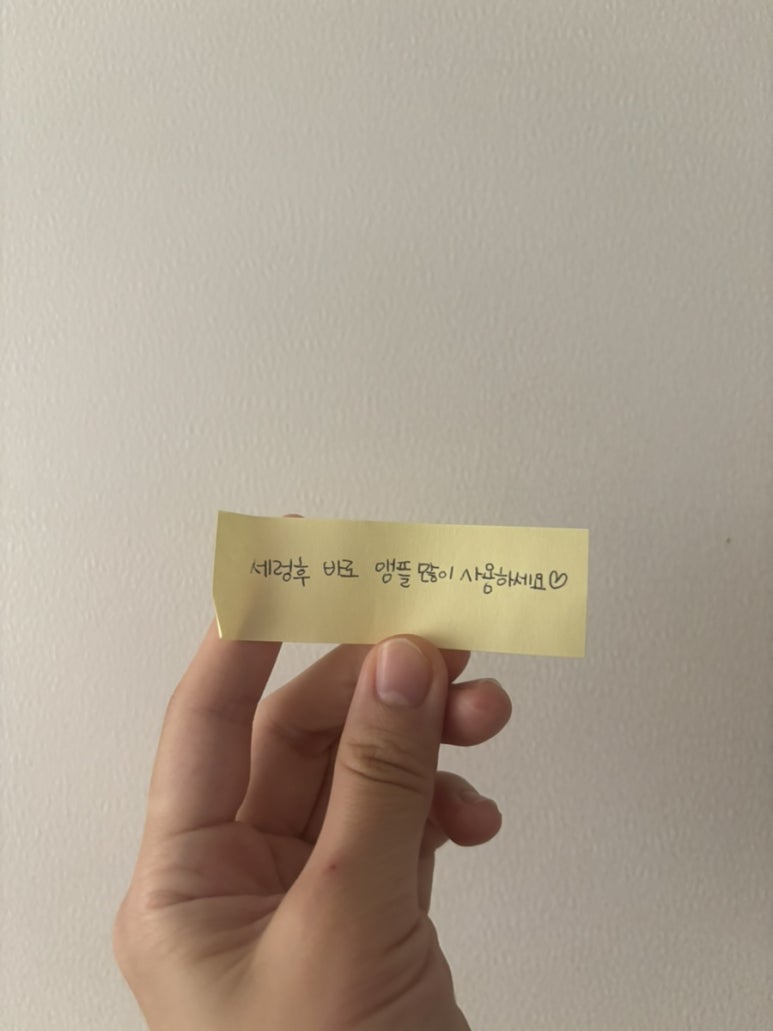 세렁후 바로 앰플 많이 사용하세요♡